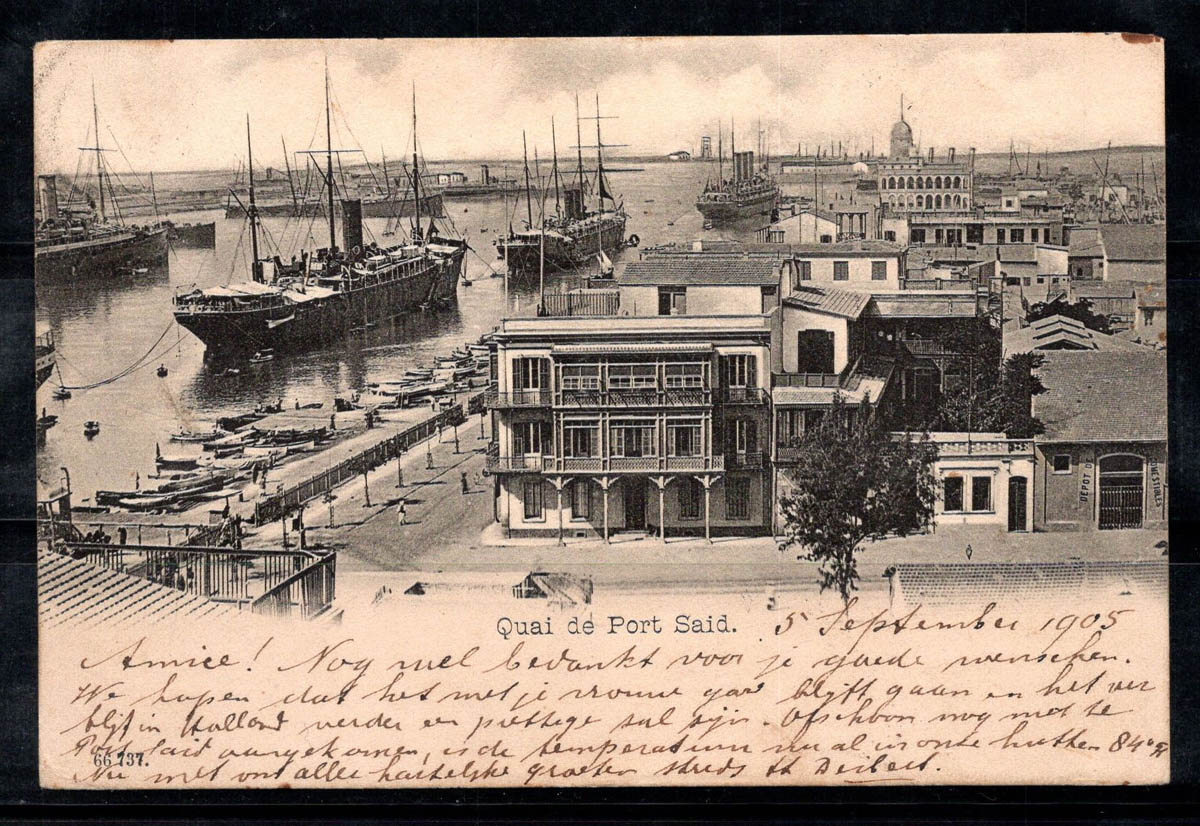 DEPOT D
Quai de Port Said.
5 September 1905
Amice! Nog wel bedankt voor je goede wenschen.
We hopen dat het met je vrouw blijft gaan en het ver
blijf in Holland verder een prettige zal zijn. Ofschoon nog niet te
Port Said aangekomen, is de temperatuur nu al in onze hutten 84° F
66 737.
Nu met ons aller hartelijke groeten steeds